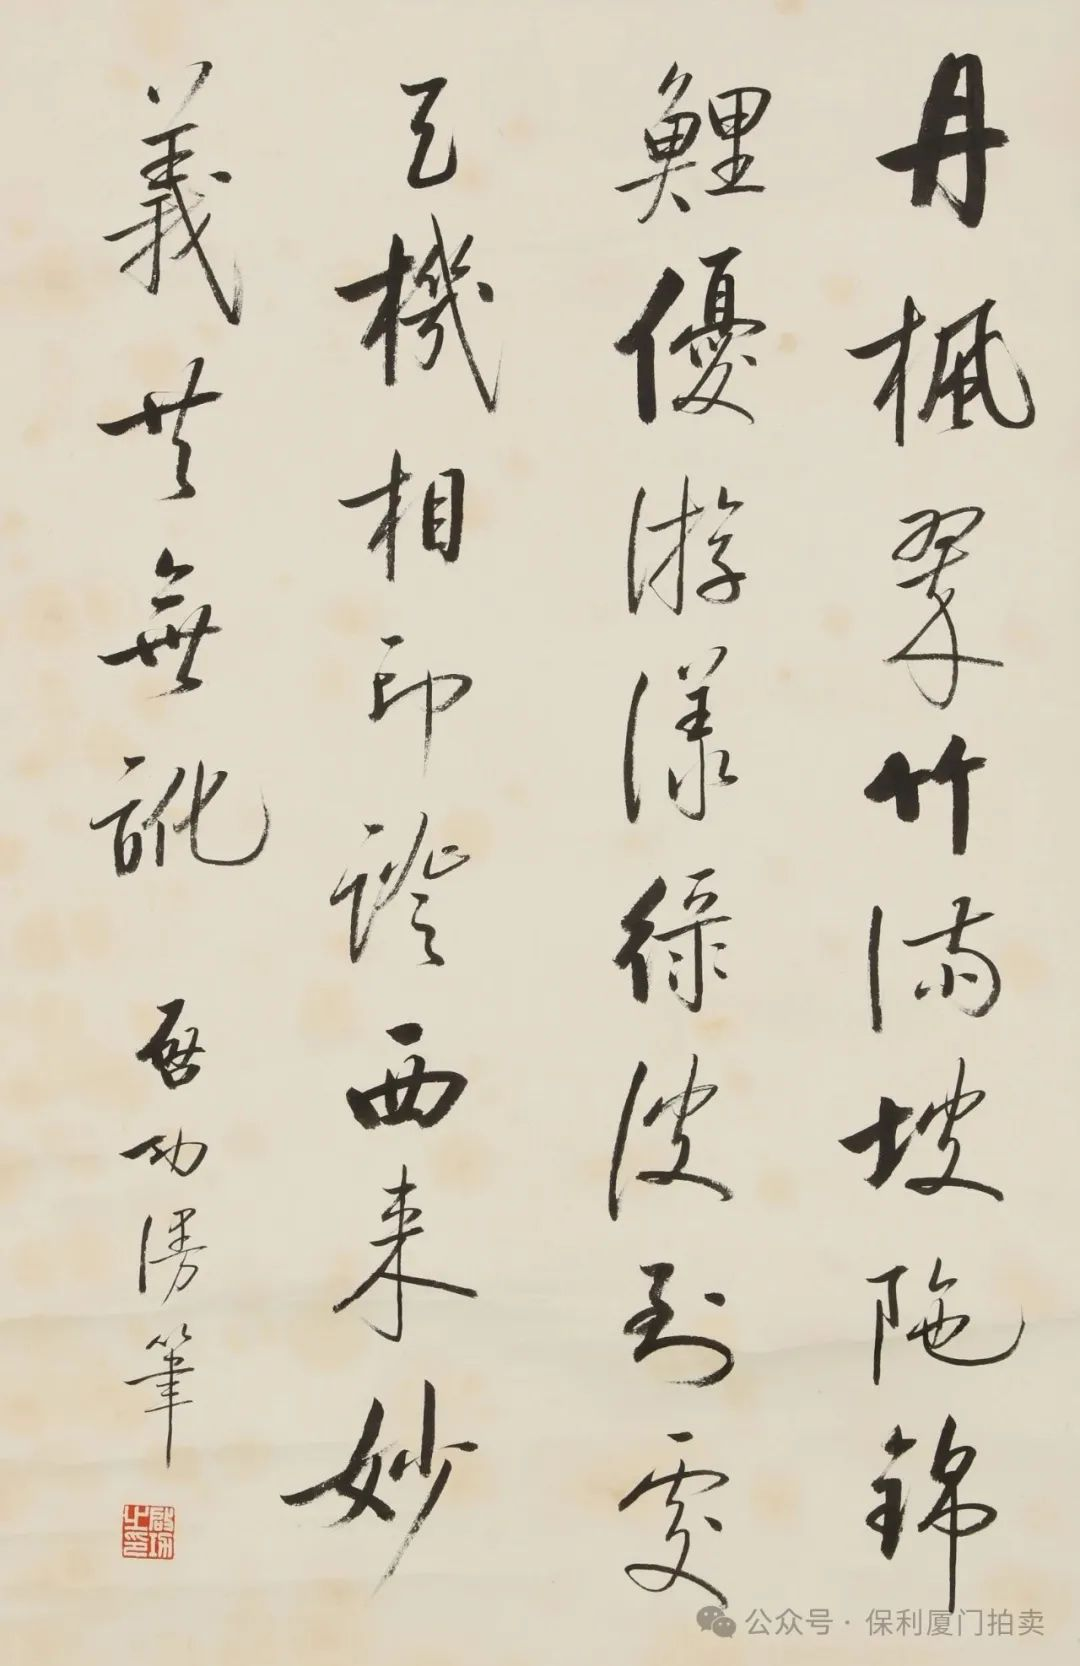 丹楓翠竹滿坡陁錦
鯉優游漾綠波到處
天機相印證西來妙
義共無訛
啓功漫筆
啟功之印
公众号 · 保利厦门拍卖